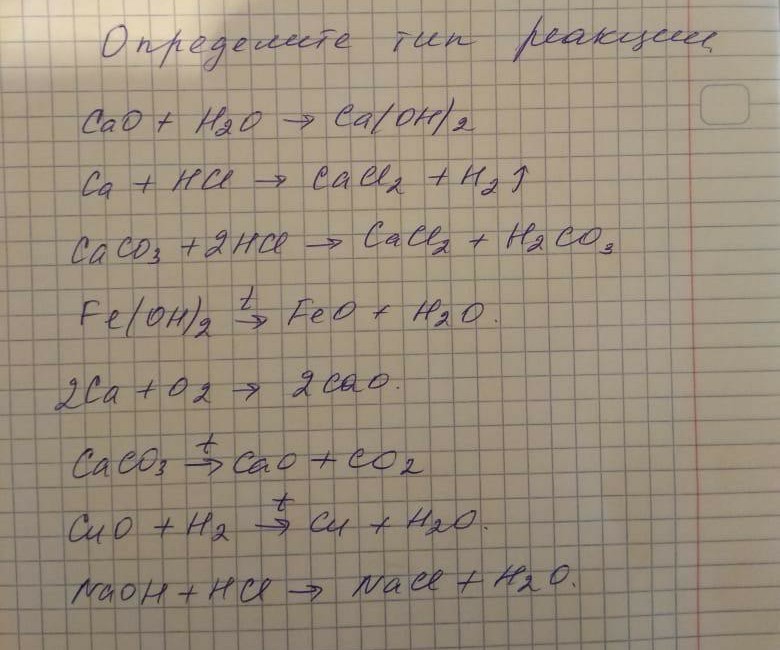 Определите тип реакции
CaO + H2O → Ca(OH)2
Ca + HCl → CaCl2 + H2↑
CaCO3 + 2HCl → CaCl2 + H2CO3
Fe(OH)2 t→ FeO + H2O.
2Ca + O2 → 2CaO.
CaCO3 t→ CaO + CO2
CuO + H2 t→ Cu + H2O.
NaOH + HCl → NaCl + H2O.